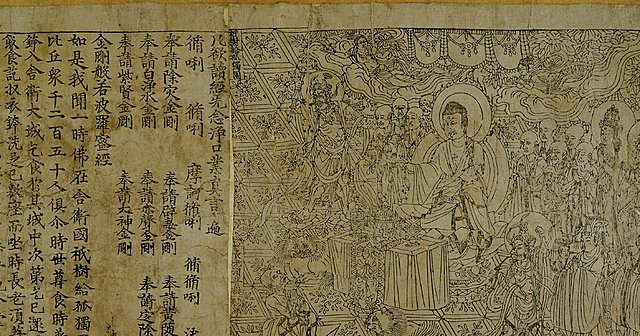 凡欲讀經先念淨口業真言一遍
脩唎 脩唎 摩訶脩唎 脩脩唎
奉請除灾金剛 奉請辟毒金剛 奉請黃隨
奉請白淨水金剛 奉請赤聲金剛 奉請定除
奉請紫賢金剛 奉請大神金剛
金剛般若波羅蜜經
如是我聞一時佛在舍衛國祇樹給孤獨
比丘衆千二百五十人俱尒時世尊食時
鉢入舍衛大城乞食於其城中次第乞已還
飯食訖收衣鉢洗足已敷座而坐時長老湏菩